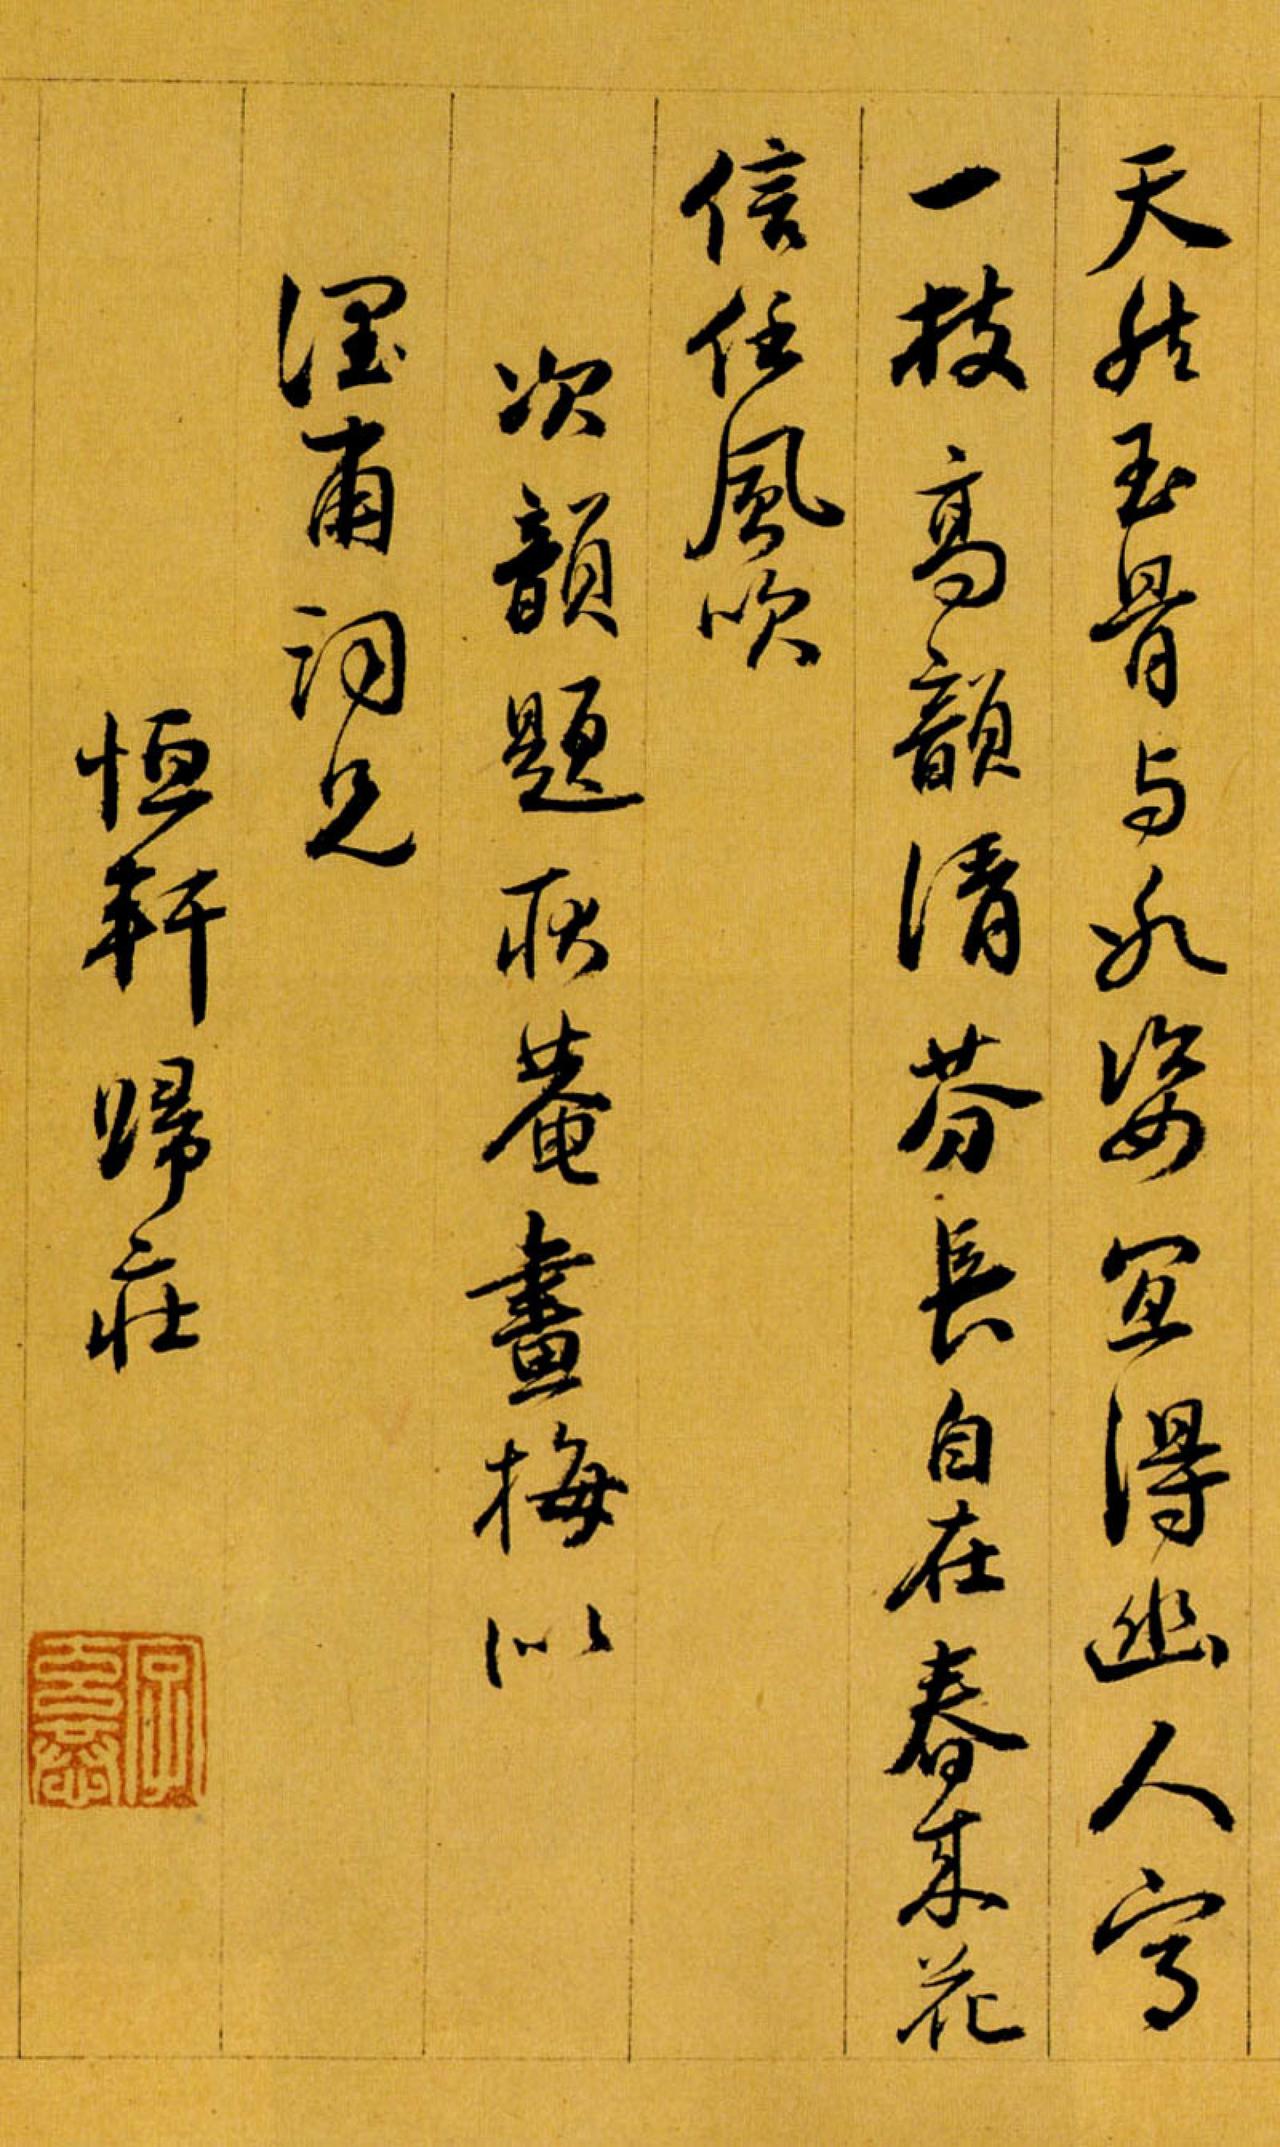 天然玉骨与冰姿宜得幽人寫
一枝高韻清芬長自在春來花
信任風吹
次韻題耿菴畫梅似
甫詞兄
恒軒歸莊
字玄恭